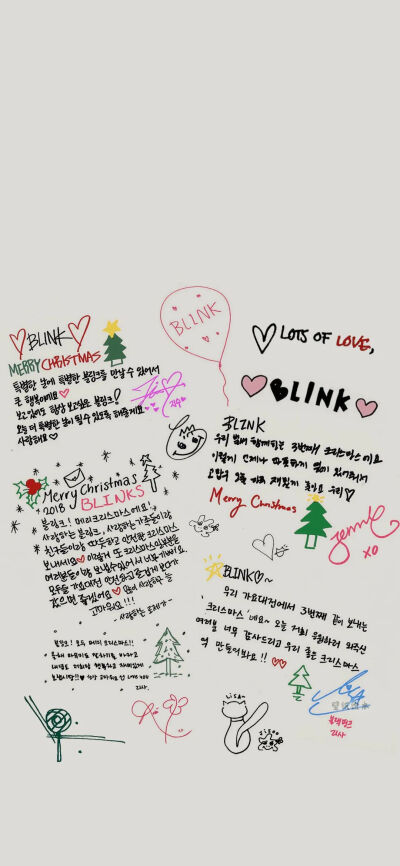 BLINK
MERRY CHRISTMAS
특별한 날에 특별한 블링크를 만날 수 있어서
큰 행복이에요
보고있어도 항상 보고싶은 블링크!
오늘 더 특별한 날이 될 수 있도록 해줄게요
사랑해요
지수
BLINK
LOTS OF LOVE,
BLINK
BLINK
우리 벌써 함께하는 3번째 크리스마스 이요
이렇게 언제나 따뜻하게 옆에 있어줘서
Merry Christmas
Jennie
XO
Merry Christmas
2018 BLINKS
블링크! 메리크리스마스에요!
사랑하는 블링크, 사랑하는 가족들이랑
친구들이랑 따뜻하고 안전한 크리스마스
보내세요 이렇게 또 크리스마스 일부분을
여러분들이랑 보낼 수 있어서 너무 기뻐요
모두들 가요대전 안전하고 즐겁게 보다가
갔으면 좋겠어요
고마워요!!!
사랑하는 로제가
BLINK ~
우리 가요대전에서 3번째 같이 보내는
크리스마스 네요~ 오늘 저희 응원하러 와주신
여러분 너무 감사드리고 우리 좋은 크리스마스
만들어봐요!!
블랙핑크
리사
블링크! 오늘 메리 크리스마스!!
Lisa